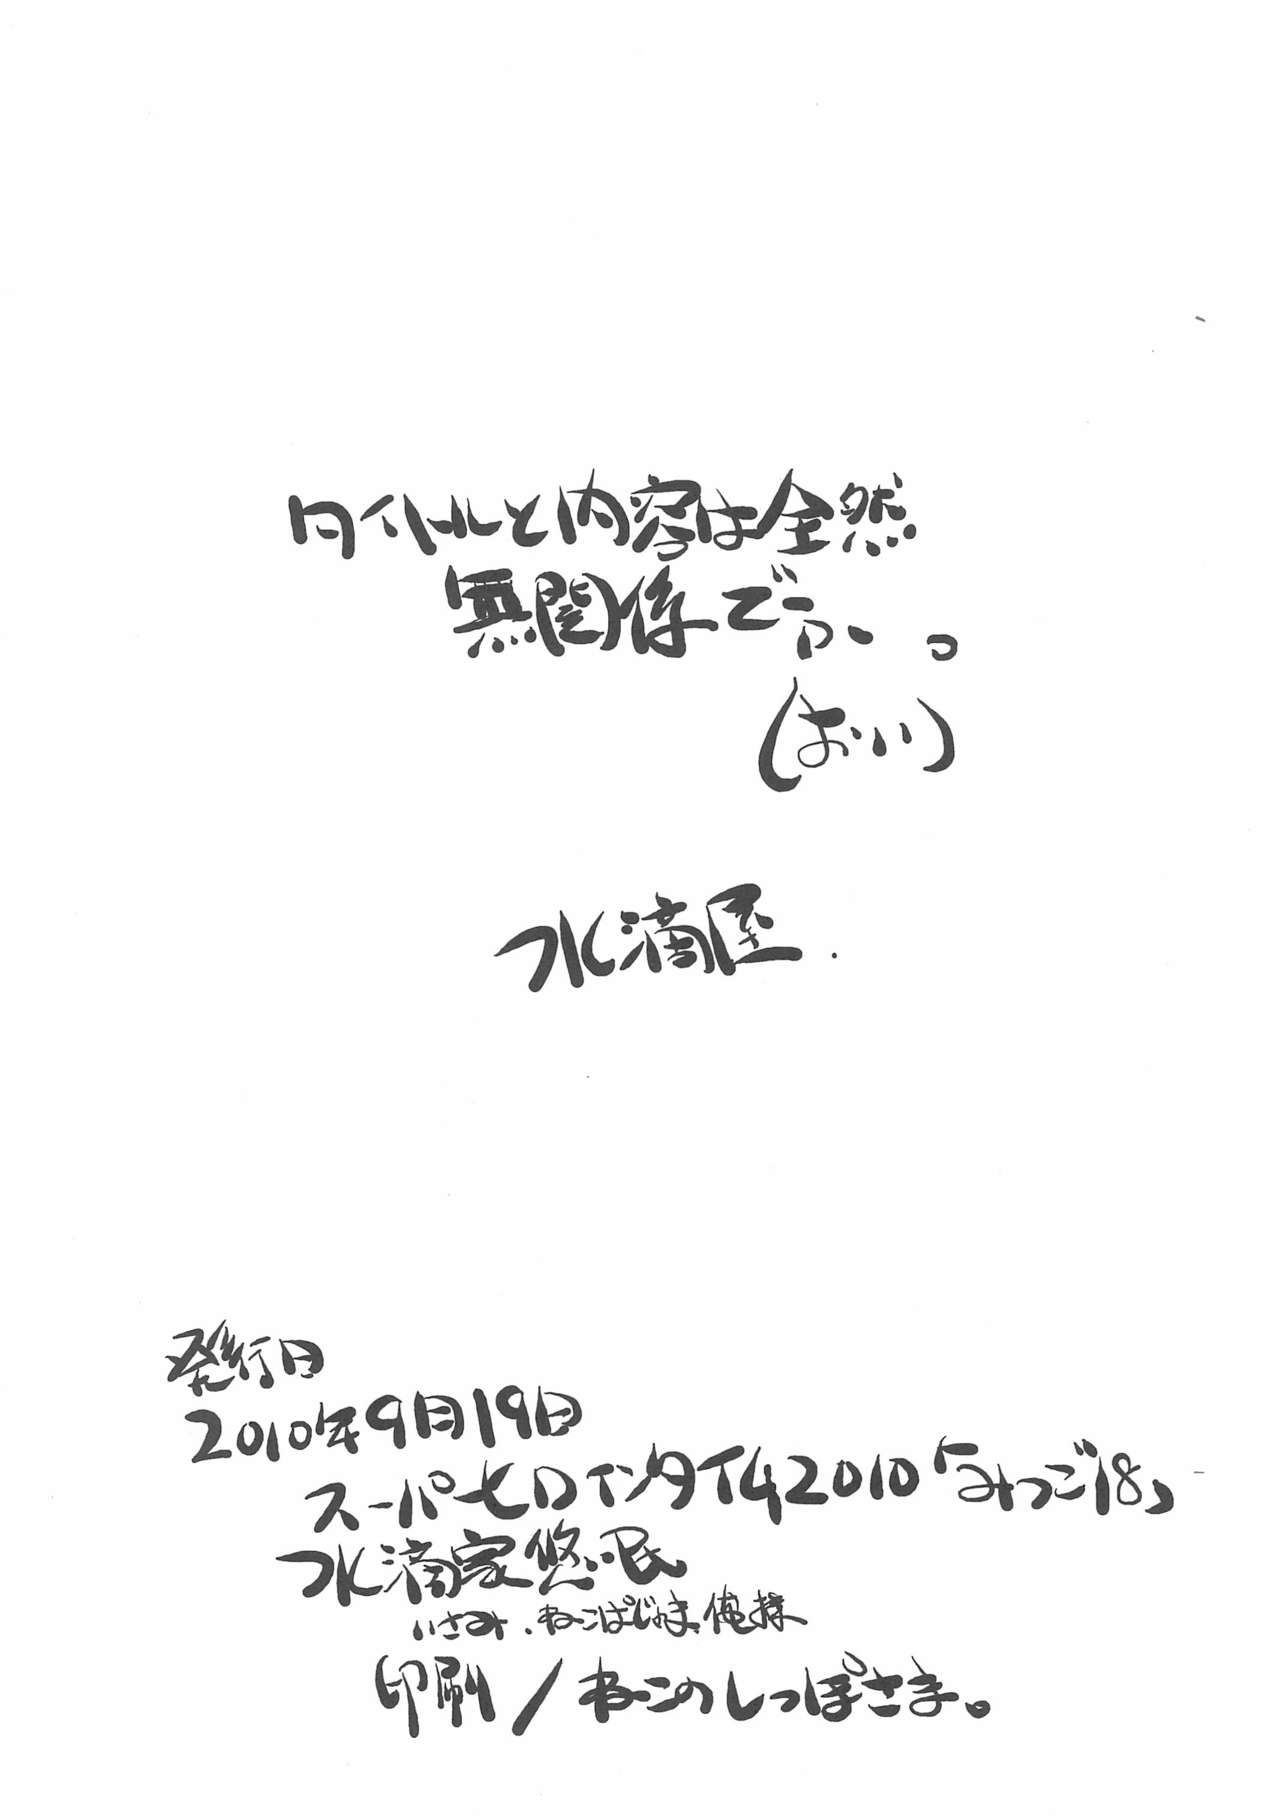 タイトルと内容は全然
無関係でぅ〜。
(おいい)
水滴屋.
発行日
2010年9月19日
スーパーヒロインタイム2010「みつご18」
水滴家悠眠
いさみ、ねこぱじゃま、俺様
印刷/ねこのしっぽさま。